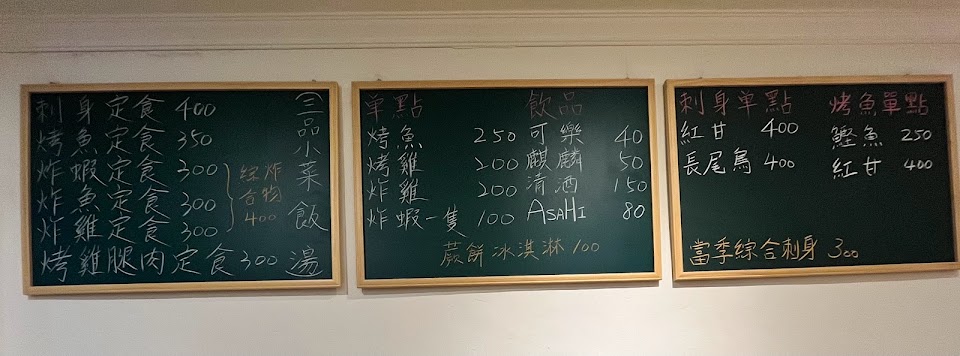 刺身定食 400
烤魚定食 350
炸蝦定食 300
炸魚定食 300
炸雞定食 300
烤雞腿肉定食 300
綜炸
合物
400
(三品小菜 飯 湯
单點
烤魚 250
烤雞 200
炸雞 200
炸蝦一隻 100
飲品
可樂 40
麒麟 50
清酒 150
ASAHI 80
蕨餅冰淇淋 100
刺身单點
紅甘 400
長尾鳥 400
烤魚單點
鰹魚 250
紅甘 400
當季綜合刺身 300